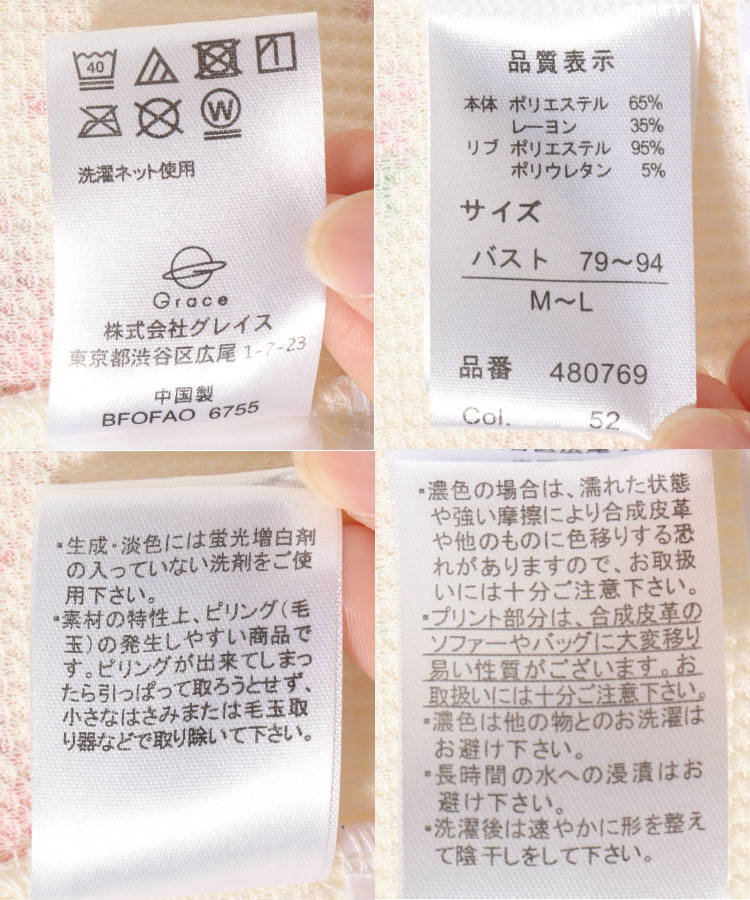 40
W
洗濯ネット使用
Grace
株式会社グレイス
東京都渋谷区広尾1-7-23
中国製
BFOFAO 6755
品質表示
本体 ポリエステル 65%
レーヨン 35%
リブ ポリエステル 95%
ポリウレタン 5%
サイズ
バスト 79～94
M～L
品番 480769
Col. 52
・生成・淡色には蛍光増白剤
の入っていない洗剤をご使
用下さい。
・素材の特性上、ピリング(毛
玉)の発生しやすい商品で
す。ピリングが出来てしまっ
たら引っぱって取ろうとせず、
小さなはさみまたは毛玉取
り器などで取り除いて下さい。
・濃色の場合は、濡れた状態
や強い摩擦により合成皮革
や他のものに色移りする恐
れがありますので、お取扱
いには十分ご注意下さい。
・プリント部分は、合成皮革の
ソファーやバッグに大変移り
易い性質がございます。お
取扱いには十分ご注意下さい。
・濃色は他の物とのお洗濯は
お避け下さい。
・長時間の水への浸漬はお
避け下さい。
・洗濯後は速やかに形を整え
て陰干しをして下さい。